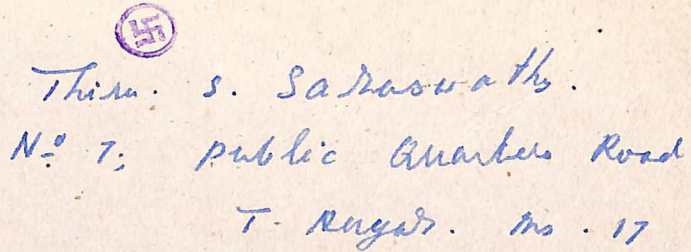 Thiru. S. Saraswathy.
Nº 7, Public Quarters Road
T. Nagar. Ms. 17